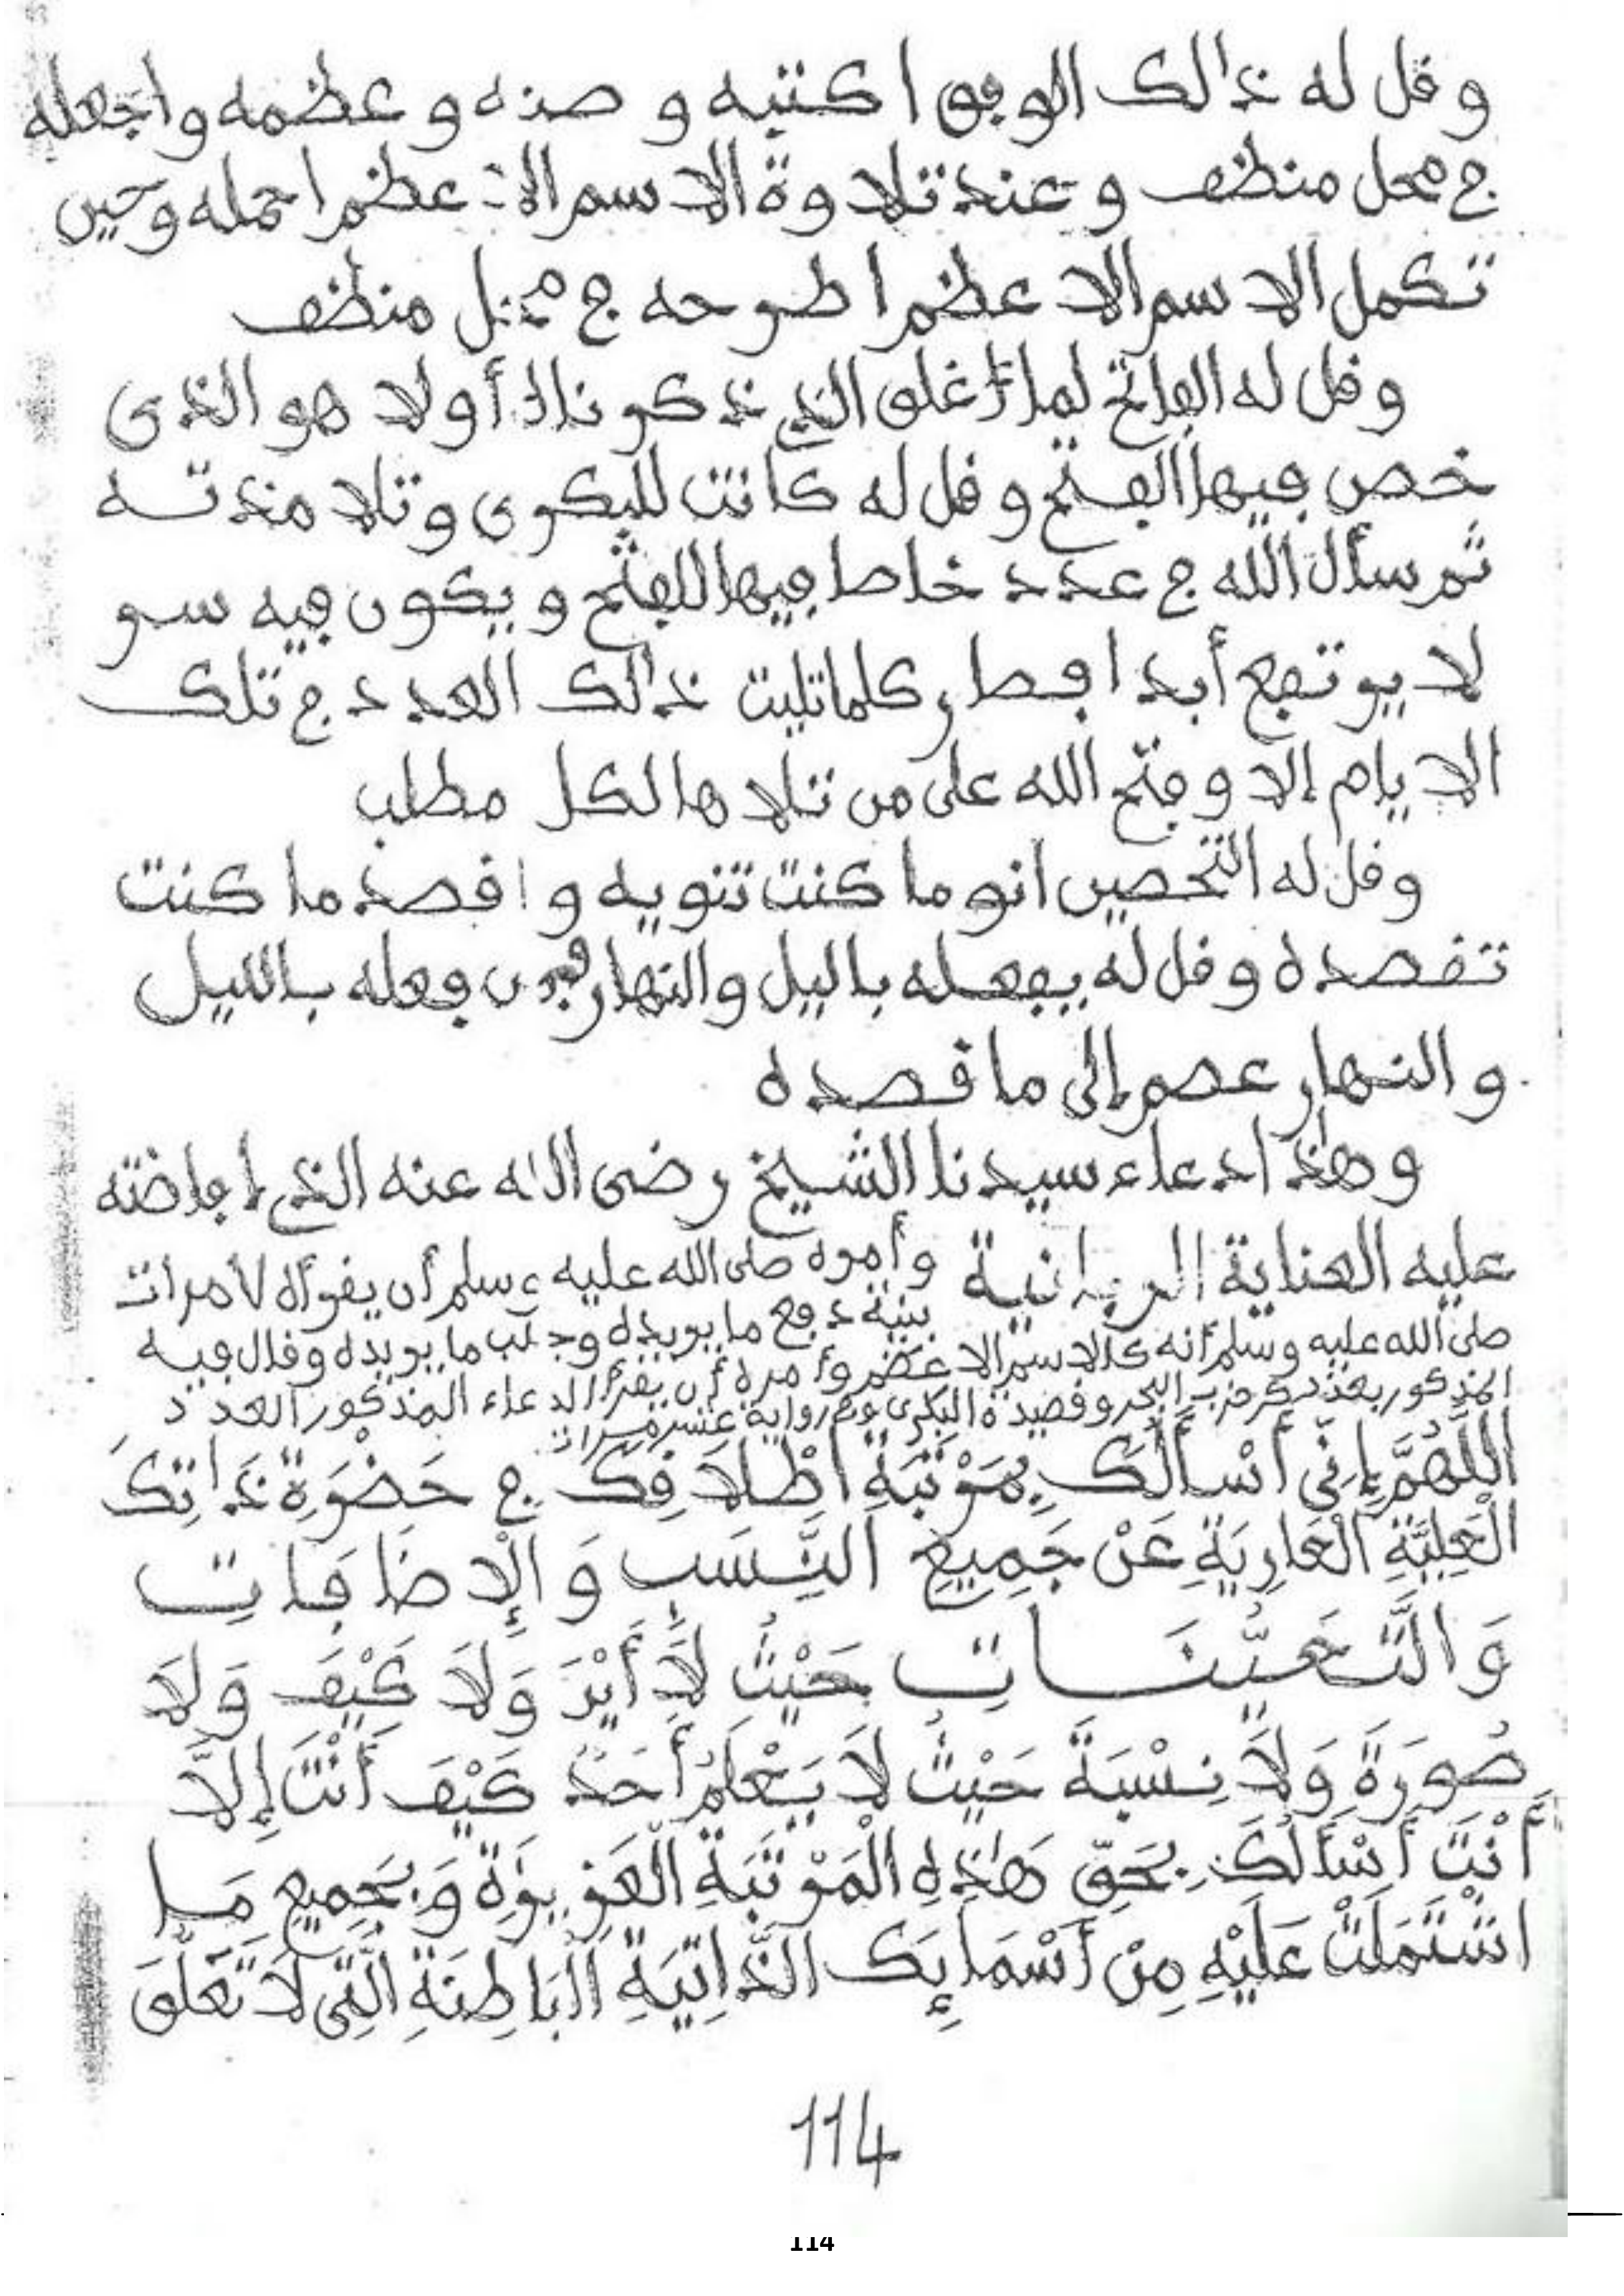 وقل له ذالك الوفق اكتبه وصنه وعظمه واجعله
في محل منظف وعند تلاوة الاسم الاعظم احمله وحين
تكمل الاسم الاعظم اطرحه في محل منظف
وقل له الفاتح لما أغلق الذي ذكرنا أولا هو الذى
خص فيها الفتح وقل له كانت للبكرى وتلامذته
ثم سأل الله في عدد خاصا فيها للفتح ويكون فيه سر
لا يرتفع أبدا كلما تليت ذالك العدد في تلك
الايام إلا وفتح الله على من تلاها لكل مطلب
وقل له التحصين انو ما كنت تنويه واقصد ما كنت
تقصده وقل له يفعله باليل والنهار فمن فعله بالليل
والنهار عصم إلى ما قصده
وهذا دعاء سيدنا الشيخ رضى الله عنه الذي أفاضته
عليه العناية الربانية وأمره صلى الله عليه وسلم أن يقرأه ٧ مرات
بنية دفع ما يريده وجلب ما يريده وقال فيه
صلى الله عليه وسلم أنه كالاسم الاعظم وأمره أن يقرأ الدعاء المذكور العدد
المذكور بعد ذكر حزب البحر وقصيدة البكرى وفي رواية عشر مرات
اللَّهُمَّ إِنِّي أَسْأَلُكَ بِمَرْتَبَةِ اطْلَاقِكَ في حَضْرَةِ ذَاتِكَ
الْعَلِيَّةِ الْعَارِيَةِ عَنْ جَمِيعِ النِّسَبِ وَالْإِضَافَاتِ
وَالتَّعَيُّنَاتِ بِحَيْثُ لَا أَيْنَ وَلَا كَيْفَ وَلَا
صُورَةَ وَلَا نِسْبَةَ حَيْثُ لَا يَعْلَمُ أَحَدٌ كَيْفَ أَنْتَ إِلَّا
أَنْتَ أَسْأَلُكَ بِحَقِّ هَٰذِهِ الْمَرْتَبَةِ الْعَزِيزَةِ وَبِجَمِيعِ مَا
اشْتَمَلَتْ عَلَيْهِ مِنْ أَسْمَائِكَ الذَّاتِيَةِ الْبَاطِنَةِ الَّتِي لَا تَعَلُّقَ
114
114